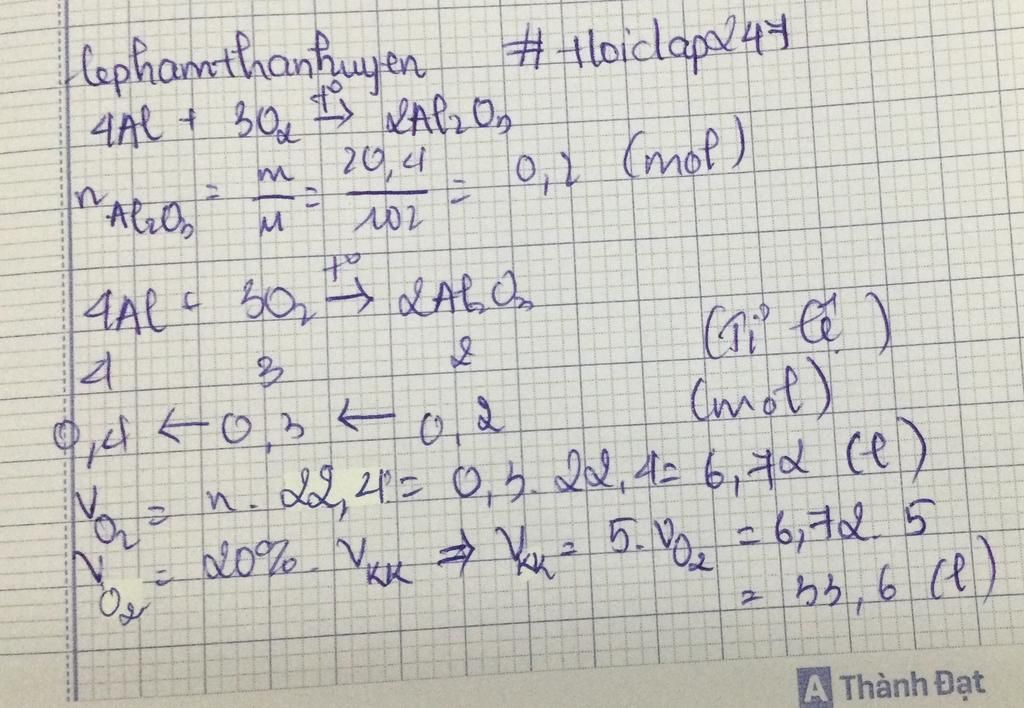 lephamthanhuyen # Hoidap247
4Al + 3O₂ t°→ 2Al₂O₃
n Al₂O₃ = m/M = 20,4/102 = 0,2 (mol)
4Al + 3O₂ t°→ 2Al₂O₃
4 3 2 (Tỉ lệ)
0,4 ← 0,3 ← 0,2 (mol)
V O₂ = n. 22,4 = 0,3. 22,4 = 6,72 (l)
V O₂ = 20% V KK ⇒ V KK = 5. V O₂ = 6,72. 5
= 33,6 (l)
A Thành Đạt